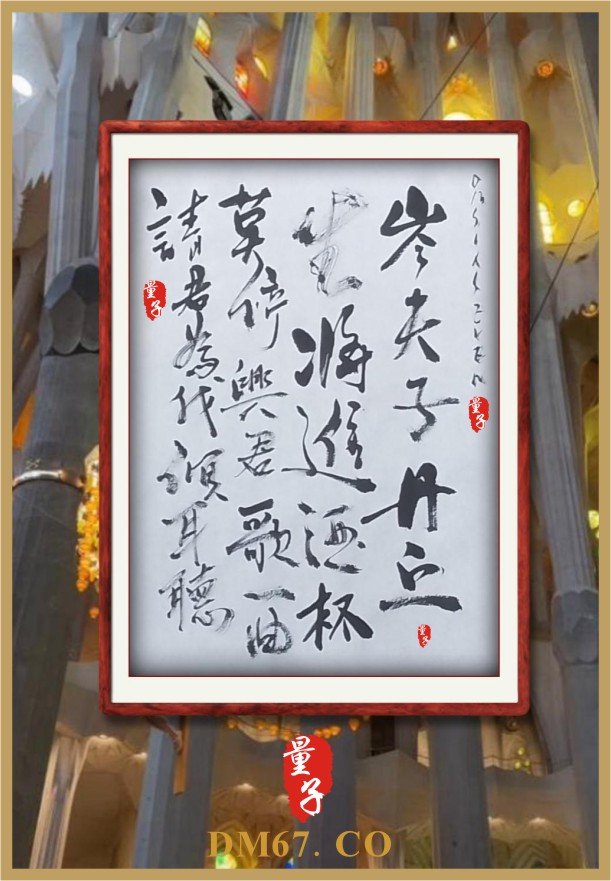 岑夫子丹丘
生將進酒杯
莫停與君歌一曲
請君為我傾耳聽
量子
量子
量子
量子
DM67. CO